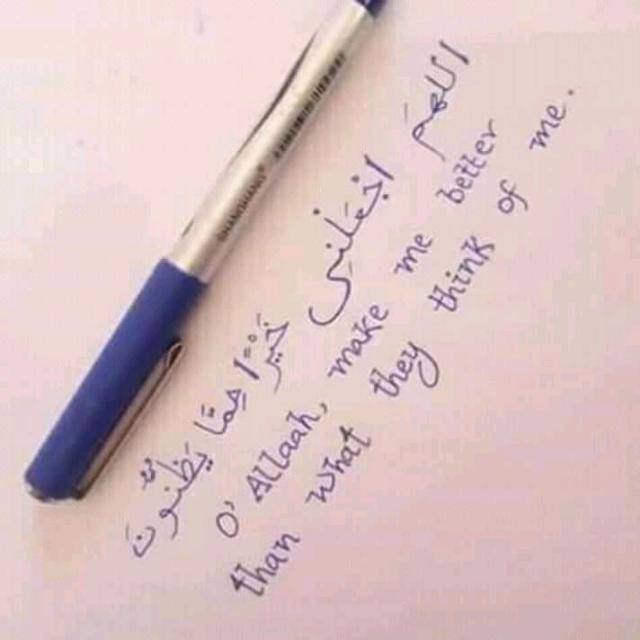 اللهمَ اجْعَلنيِ خَيْرًا مِمَّا يَظُنُّونَ
O' Allaah, make me better
than what they think of me.